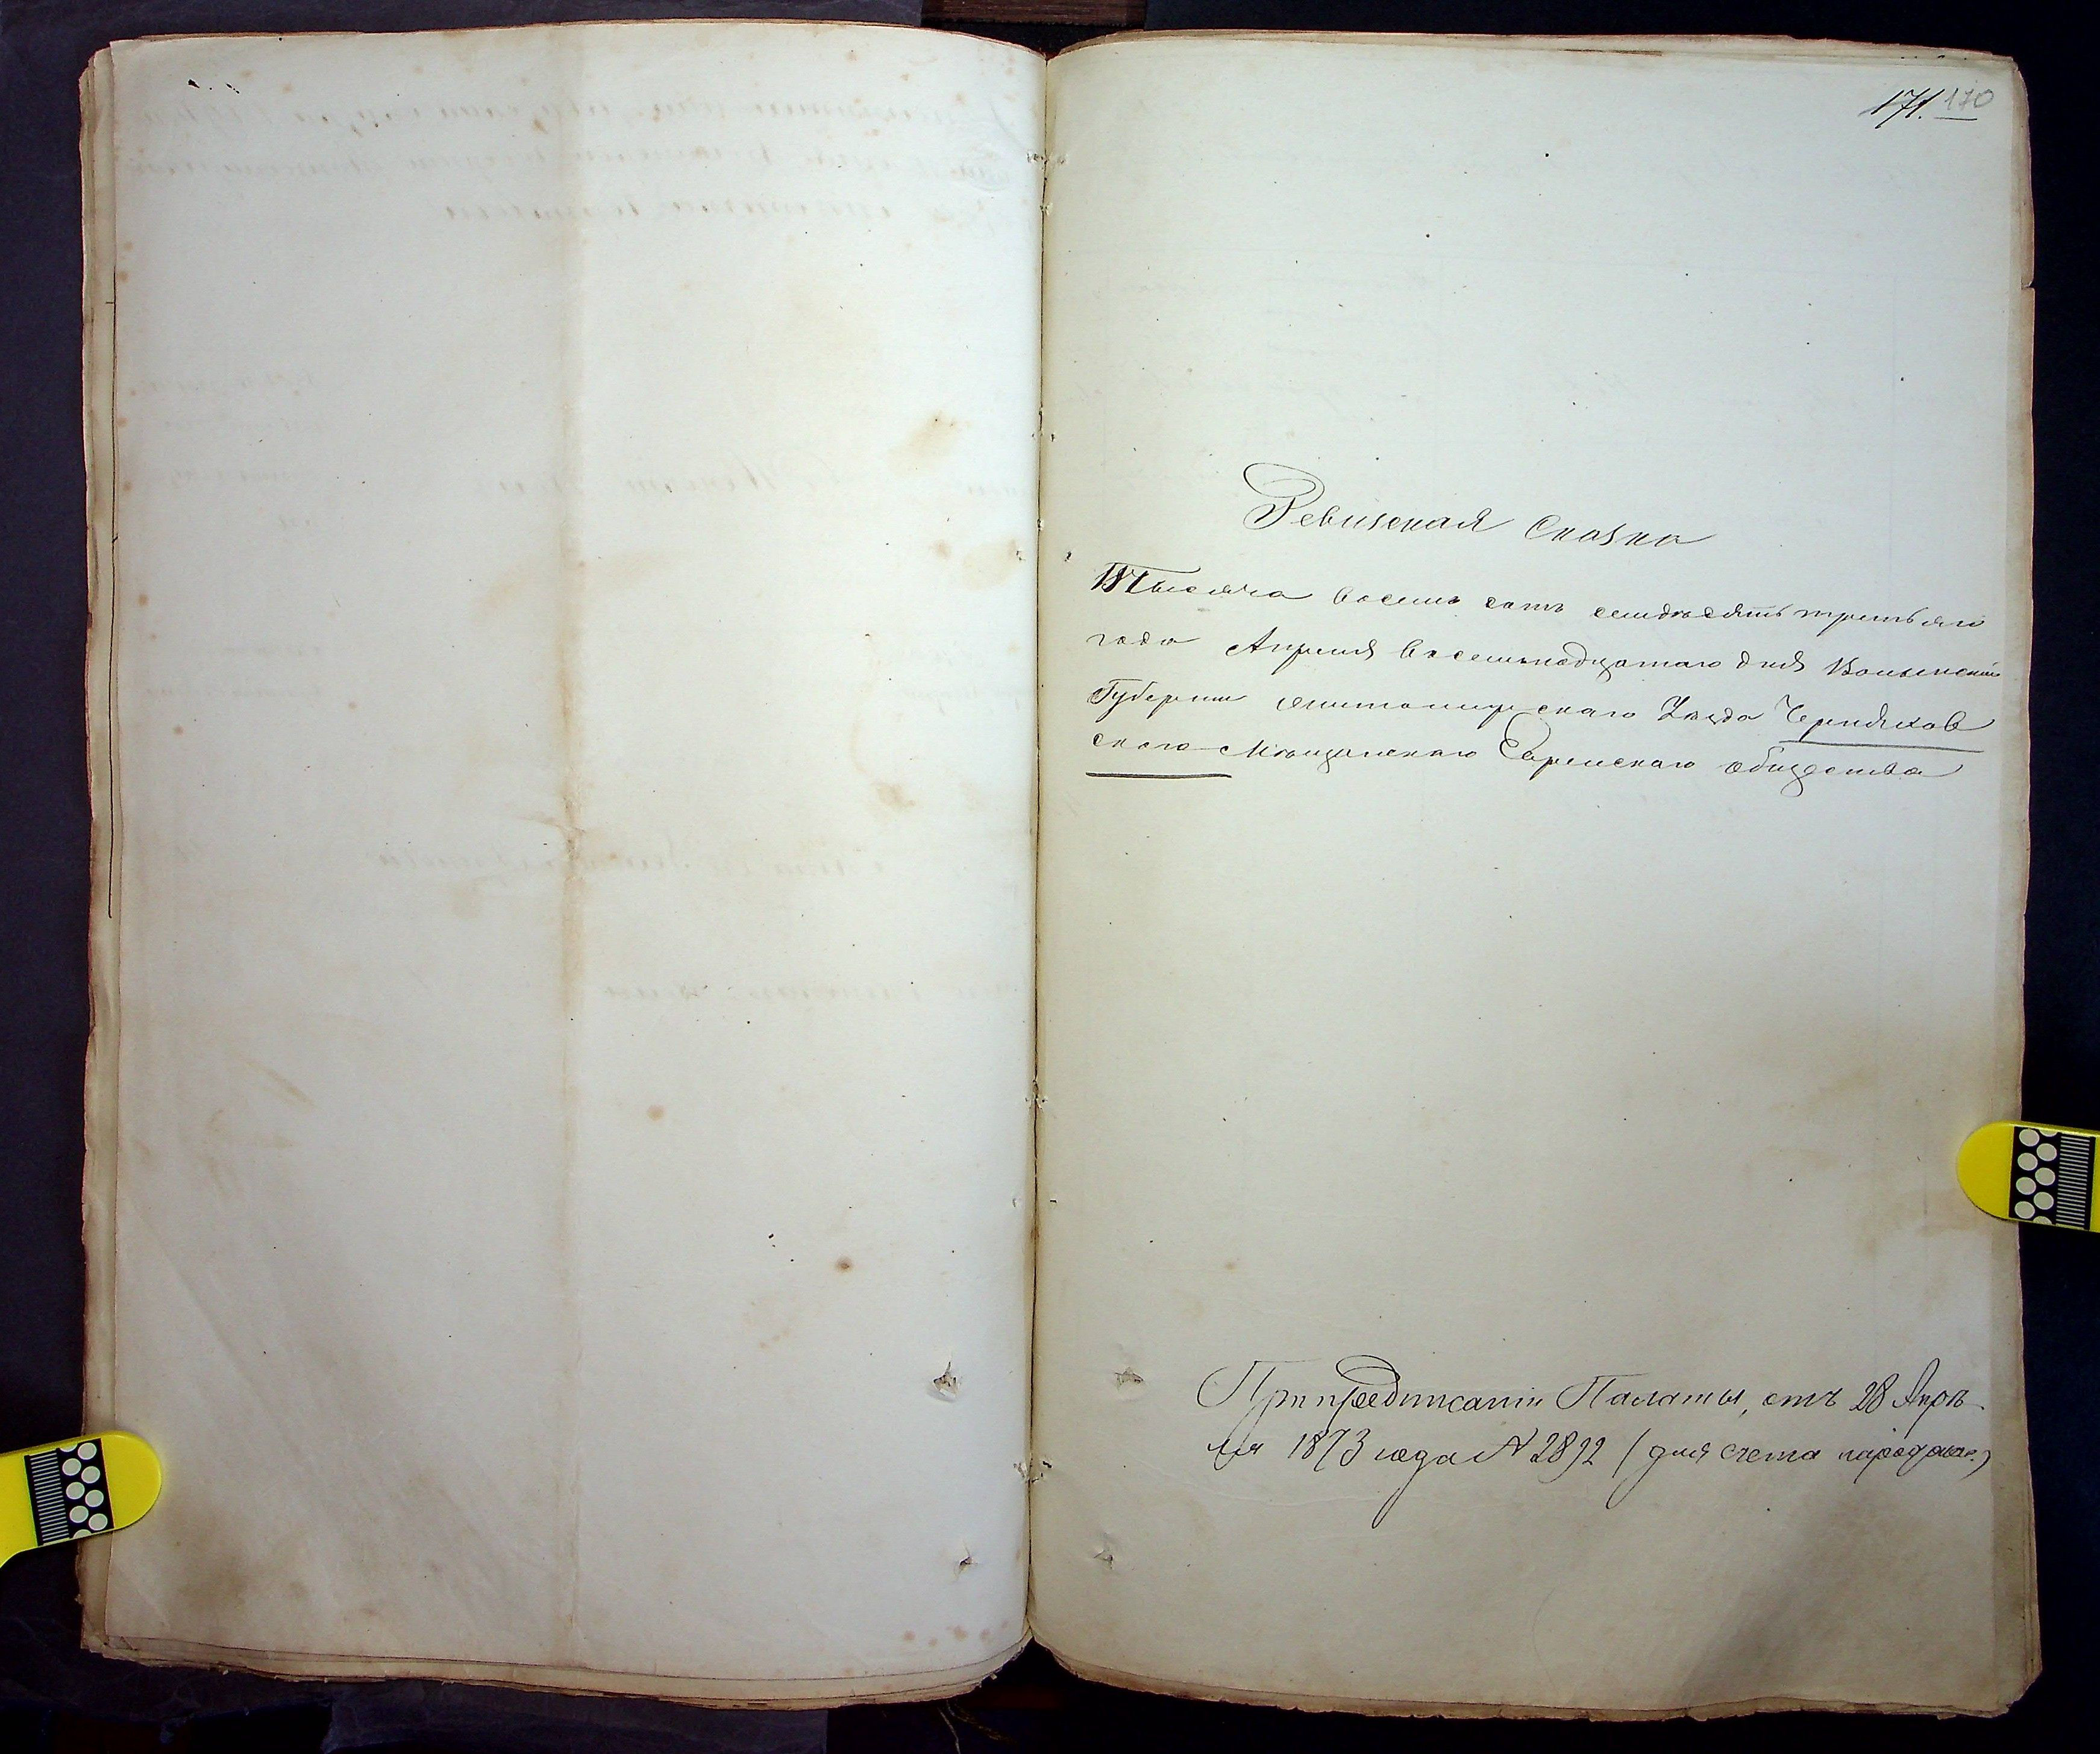 171. 170
Ревизская Сказка
Тысяча восемь сотъ семдѣсятъ третьяго
года Апреля восемьнадцатаго дня Волынской
Губернии Житомирскаго Уезда Черняхов
скаго Мѣщанскаго Еврейскаго общества
При предписании Палаты, отъ 28 Апрѣ-
ля 1873 года № 2892 (для счета